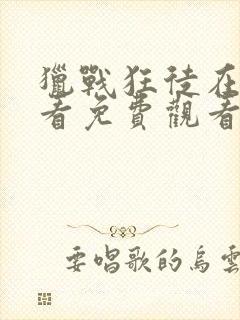 獵戰狂徒在
者免費觀看
要唱歌的烏雲